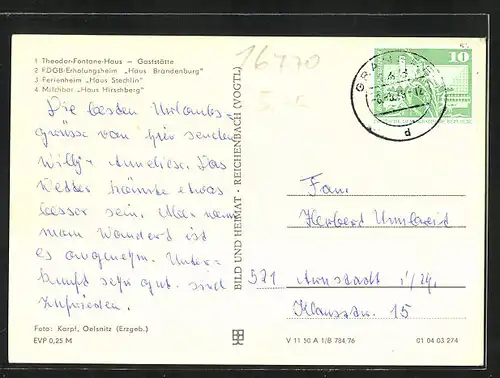 1 Theodor-Fontane-Haus — Gaststätte
2 FDGB-Erholungsheim „Haus Brandenburg"
3 Ferienheim „Haus Stechlin"
4 Milchbar „Haus Hirschberg"
16770
Die besten Urlaubs-
grüsse von hier senden
Willy + Anneliese. Das
Wetter könnte etwas
besser sein. Aber wenn
man wandert ist
es angenehm. Unter-
kunft sehr gut. sind
zufrieden.
Foto: Karpf, Oelsnitz (Erzgeb.)
EVP 0,25 M
BILD UND HEIMAT · REICHENBACH (VOGTL)
10
d
Fam.
Herbert
521 Arnstadt i/Th.
Klausstr. 15
V 11 50 A 1/B 784/76
01 04 03 274